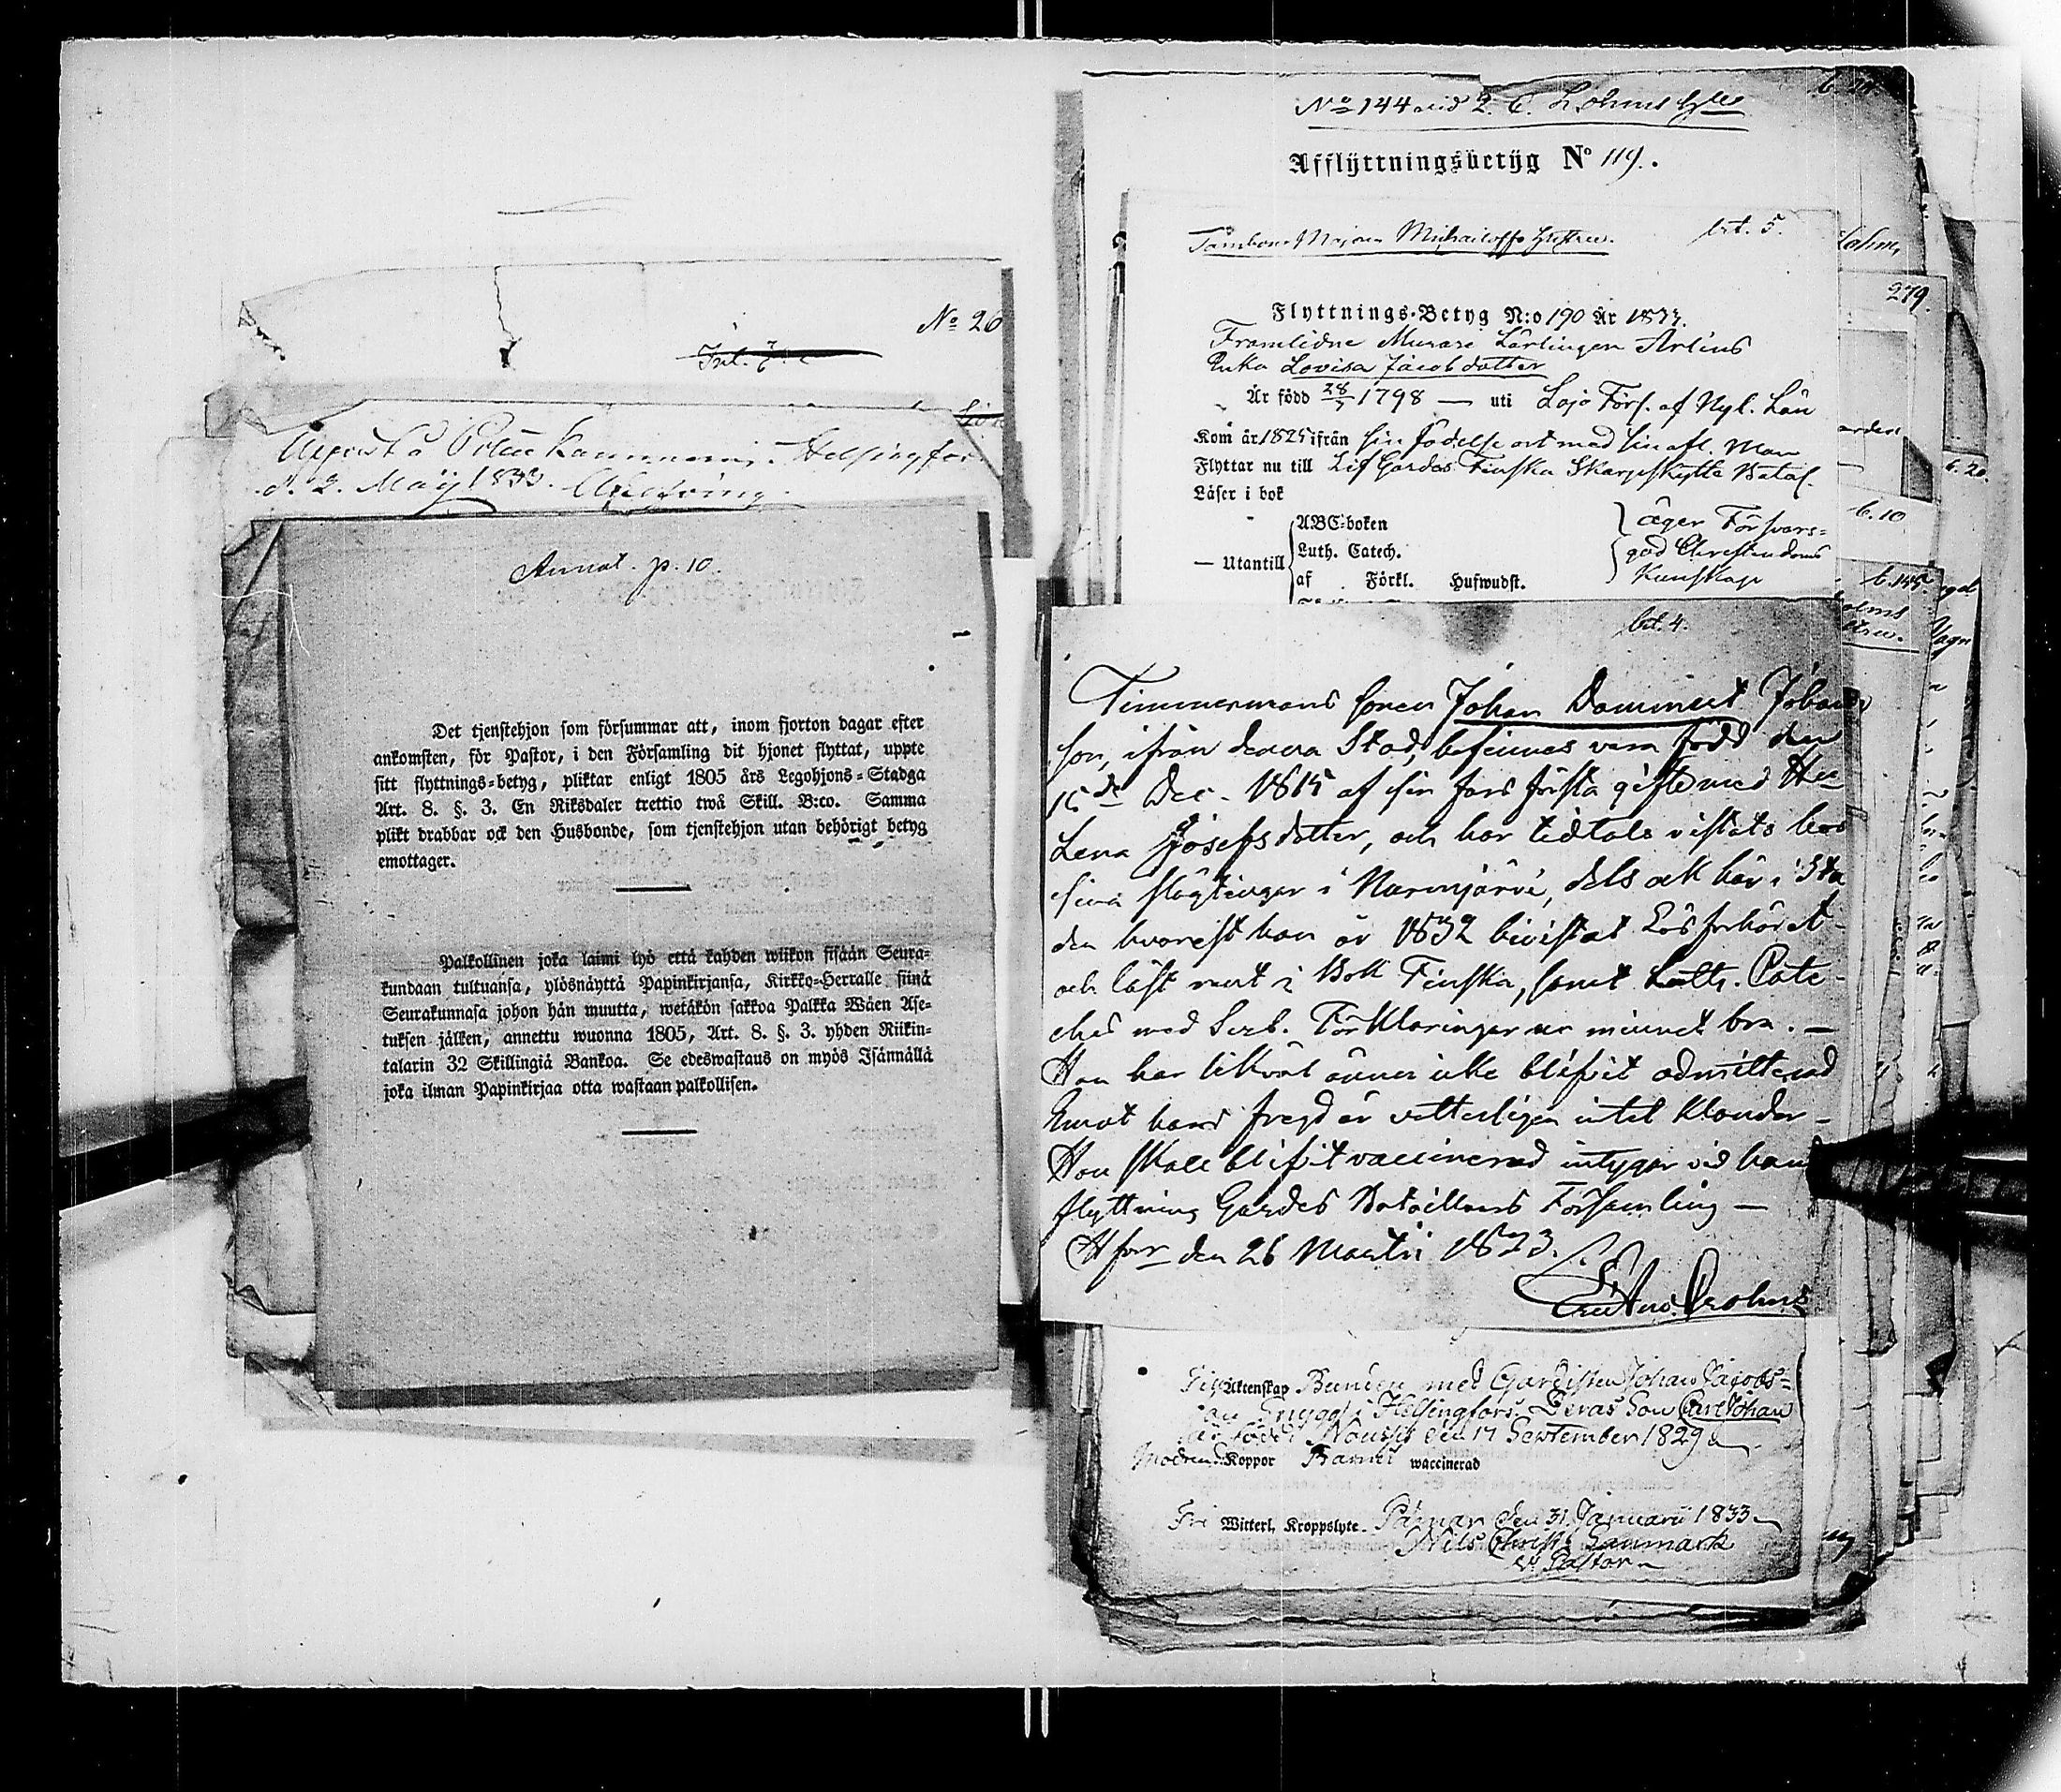 No 20
Uppvist å Police Kammaren i Helsingfors
d. 2. Maij 1833.
Annot. p. 10.
Det tjenstehjon som försummar att, inom fjorton dagar efter
ankomsten, för Pastor, i den Församling dit hjonet flyttat, uppte
sitt flyttnings-betyg, pliktar enligt 1805 års Legohjons-Stadga
Art. 8. §. 3. En Riksdaler trettio twå Skill. B:co. Samma
plikt drabbar ock den Husbonde, som tjenstehjon utan behörigt betyg
emottager.
Palkollinen joka laimi lyö että kahden wiikon sisään Seura-
kundaan tultuansa, ylösnäyttä Papinkirjansa, Kirkko-Herralle siinä
Seurakunnasa johon hän muutta, wetäkön sakkoa Palkka Wäen Ase-
tuksen jälken, annettu wuonna 1805, Art. 8. §. 3. yhden Riikin-
talarin 32 Skillingiä Bankoa. Se edeswastaus on myös Isännällä
joka ilman Papinkirjaa otta wastaan palkollisen.
No 144
Afflÿttningsbetÿg No 119.
Michailoffs Hustru. bet. 5.
Flyttnings-Betyg N:o 190 År 1833.
Framlidne Murare Lärlingen Arlins
Enka Lovisa Jacobsdotter
Är född 28/7 1798 — uti Lojo Förs. af Nyl. Län
Kom år 1825 ifrån sin födelse ort med sin afl. Man
Flyttar nu till Lif Gardes Finska Skarpskytte Batal.
Läser i bok
ABC-boken
Luth. Catech.
— Utantill
af Förkl. Hufwudst.
äger Försvars-
god Christendoms
Kunskap
279.
b. 20.
b. 10
b. 145.
bet. 4.
Timmermans sonen Johan Dammert Johans
son, ifrån denna Stad, befinnes vara född den
15de Dec. 1815 af sin fars första gifte med He
Lena Josefsdotter, och har tidtals vistats hos
sina slägtingar i Nurmijärvi, dels ock här i Sta
den hvarest han år 1832 bivistat Läsförhöret
och läst rent i Bok Finska, samt Luth. Cate-
ches med Förklaringar ur minnet bra. —
Han har likväl ännu icke blifvit admitterad
Emot hans frejd är vetterligen intet klander —
Han skall blifvit vaccinerad intygar vid hans
flyttning Gardes Bataillons Församling —
Hfors den 26 Martii 1833.
Gust. And. Crohns
Till Äktenskap Bunden med Gardisten Johan Jacobs-
son Trygg i Helsingfors. Deras Son Carl Johan
är född i Nousis den 17 September 1829
Modren Koppor Barnet waccinerad
Fri Witterl. Kroppslyte. Pämar den 31 Januarii 1833
Nils Christ. Sanmark
Pastor